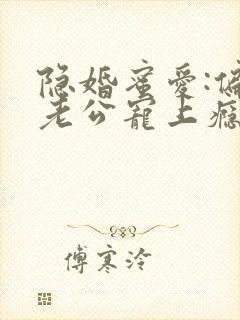 隐婚蜜爱:偏
老公寵上瘾
傅寒泠